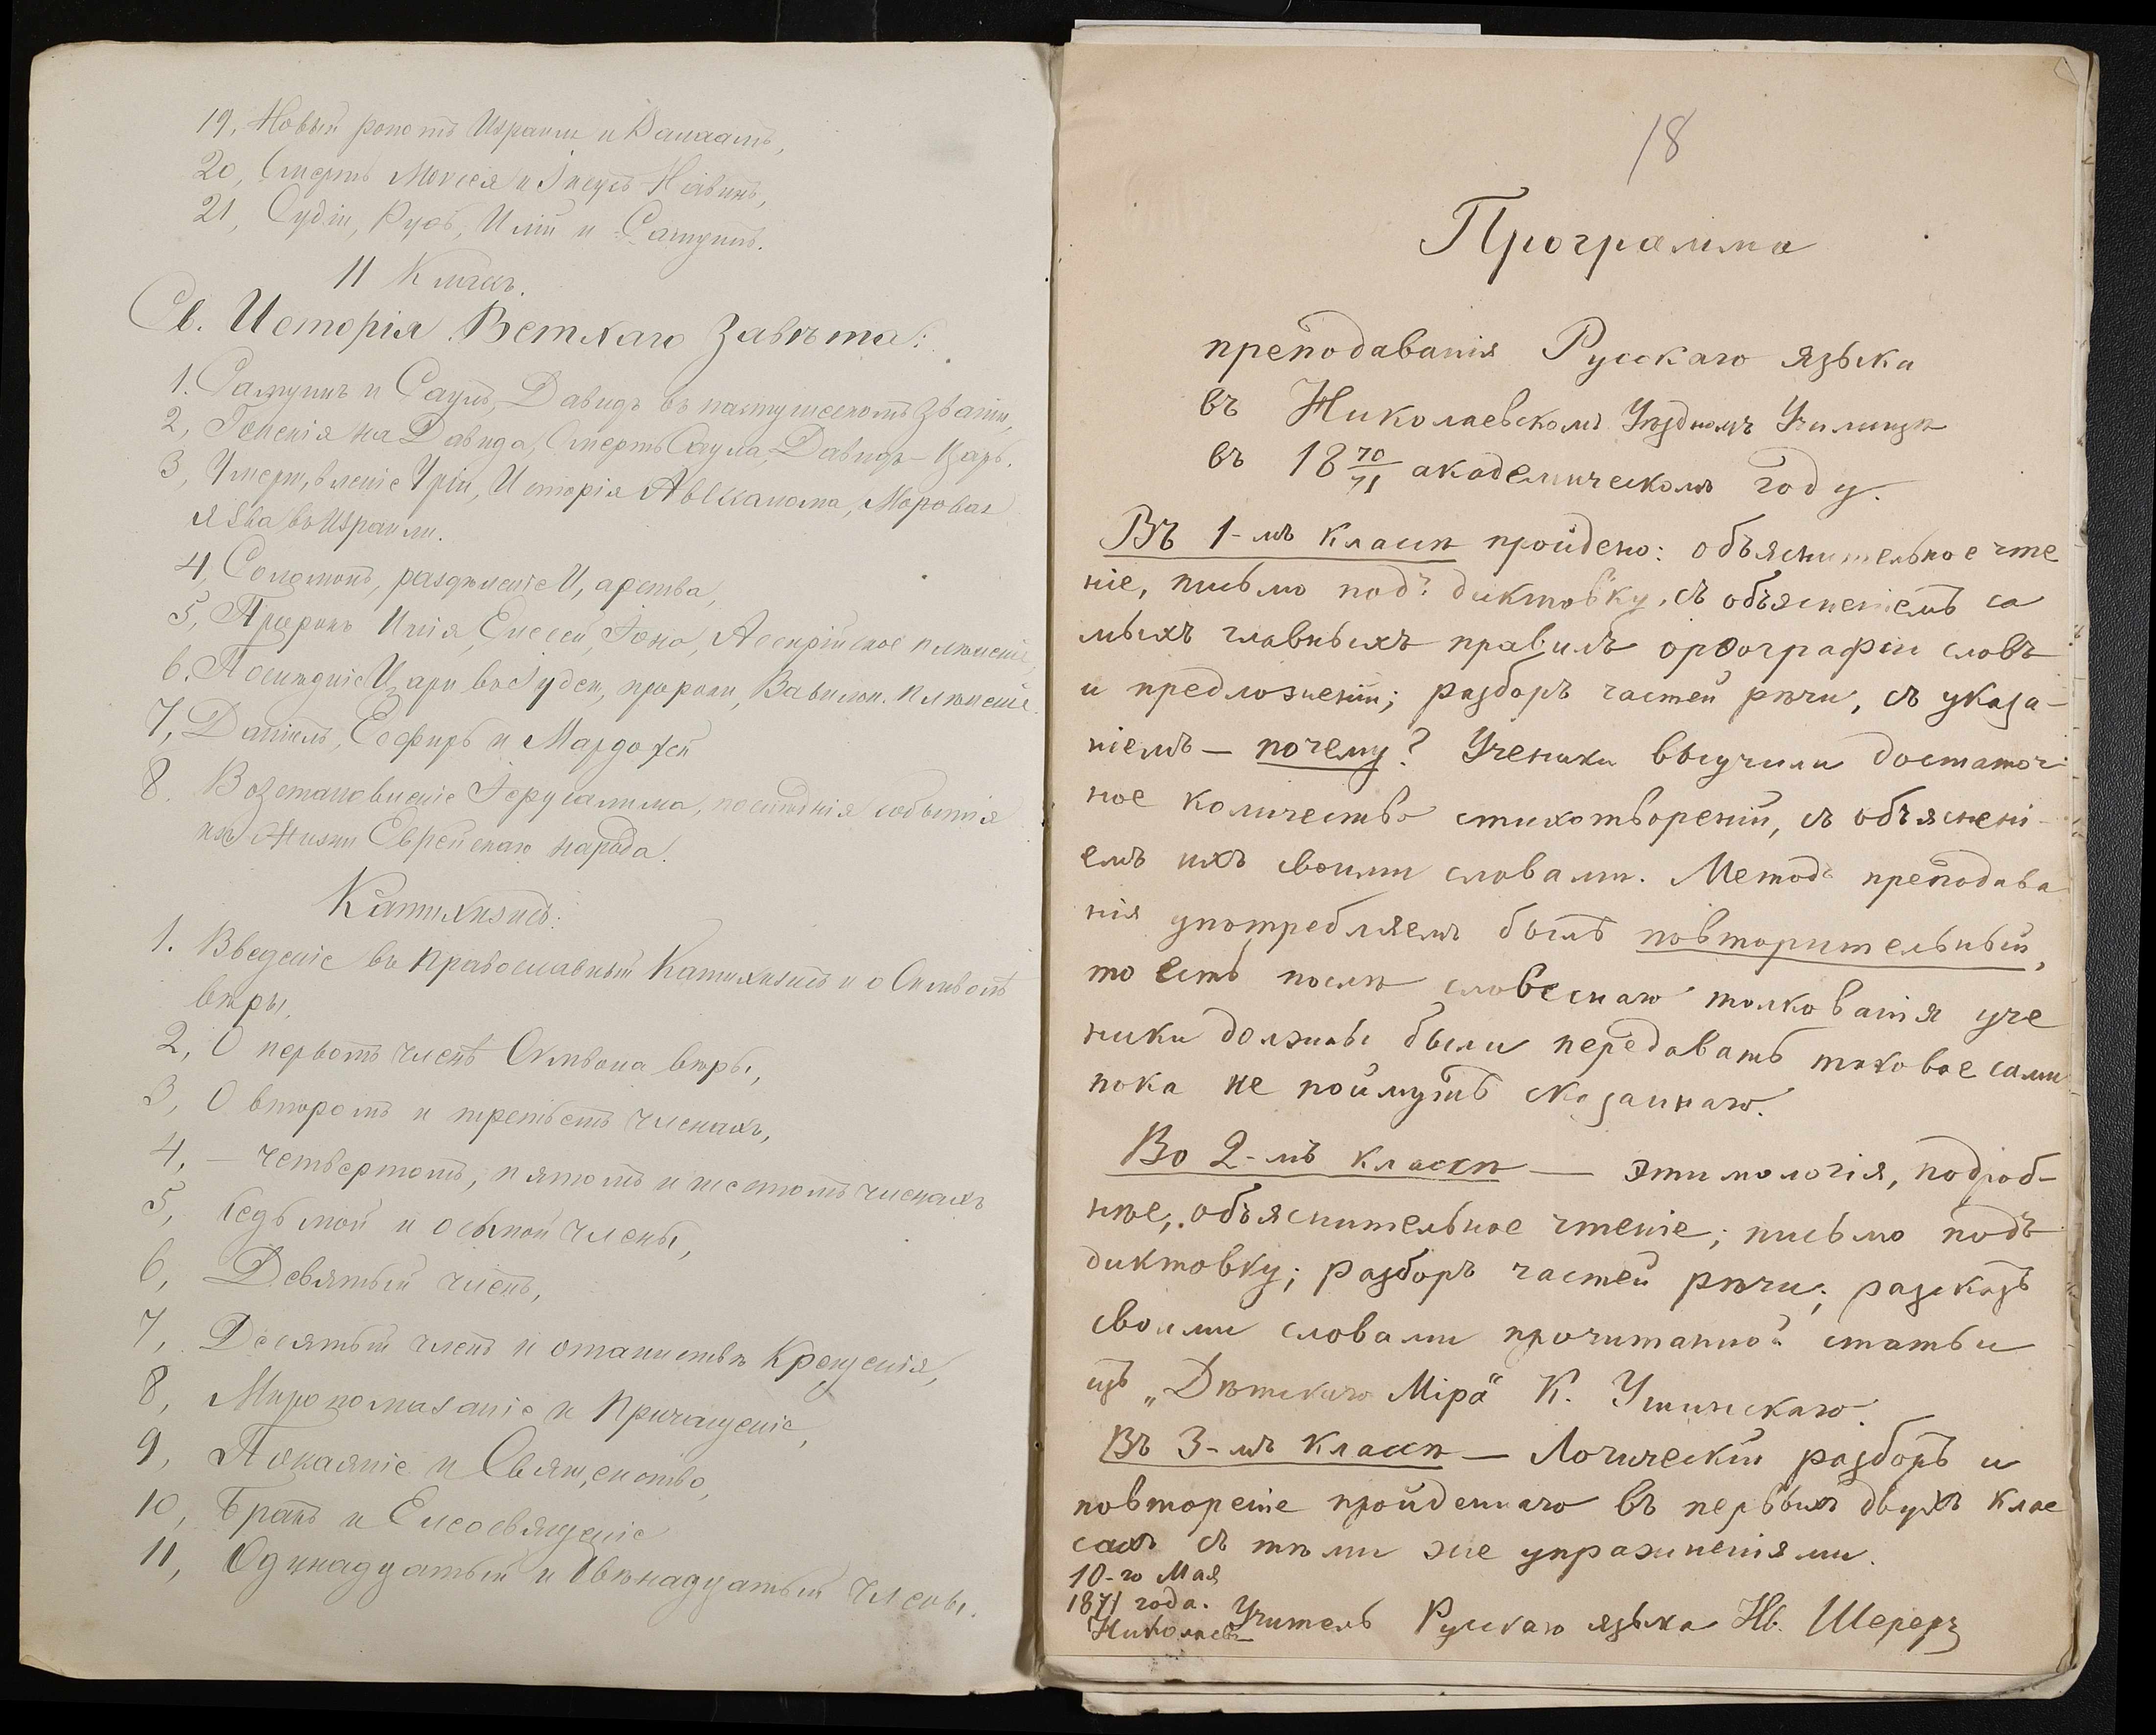 19, Новый ропотъ Израиля и Валаамъ,
20, Смерть Моисея и Іисусъ Навинъ,
21, Судіи, Руѳь, Илій и Самуилъ.
II Классъ.
Св. Исторія Ветхаго Завѣта:
1. Самуилъ и Саулъ, Давидъ въ пастушескомъ званіи,
2, Гоненія на Давида, Смерть Саула, Давидъ-Царь.
3, Умерщвленіе Уріи, Исторія Авессалома, Моровая
язва въ Израили.
4, Соломонъ, раздѣленіе Царства,
5, Пророкъ Илія, Елисей, Іона, Ассирійское плѣненіе,
6. Послѣдніе Цари въ Іудеи, пророки, Вавилон. плѣненіе.
7, Даніилъ, Есфирь и Мардохей
8. Возстановленіе Іерусалима, послѣднія событія
изъ жизни Еврейскаго народа.
Катихизисъ:
1. Введеніе въ православный Катихизисъ и о Символѣ
вѣры,
2, О первомъ членѣ Символа вѣры,
3, О второмъ и третьемъ членахъ,
4, — четвертомъ, пятомъ и шестомъ членахъ
5, Седьмой и осьмой члены,
6, Девятый членъ,
7, Десятый членъ и о таинствѣ Крещенія,
8, Мѵропомазаніе и Причащеніе,
9, Покаяніе и Священство,
10, Бракъ и Елеосвященіе
11, Одинадцатый и Двѣнадцатый члены.
18
Программа
преподаванія Русскаго языка
въ Николаевскомъ Уѣздномъ Училищѣ
въ 18 70/71 академическомъ году.
Въ 1-мъ классѣ пройдено: объяснительное чте
ніе, письмо подъ диктовку, съ объясненіемъ са
мыхъ главныхъ правилъ орѳографіи словъ
и предложеній; разборъ частей рѣчи, съ указа-
ніемъ — почему? Ученики выучили достаточ
ное количество стихотвореній, съ объяснені-
емъ ихъ своими словами. Методъ преподава
нія употребляемъ былъ повторительный,
то есть послѣ словеснаго толкованія уче
ники должны были передавать таковое сами
пока не поймутъ сказаннаго.
Во 2-мъ классѣ — этимологія, подроб-
нѣе; объяснительное чтеніе; письмо подъ
диктовку; разборъ частей рѣчи; разсказъ
своими словами прочитанной статьи
изъ „Дѣтскаго Міра" К. Ушинскаго.
Въ 3-мъ классѣ — Логическій разборъ и
повтореніе пройденнаго въ первыхъ двухъ клас
сахъ съ тѣми же упражненіями.
10-го Мая
1871 года.
Николаевъ
Учитель Русскаго языка Ив. Шереръ